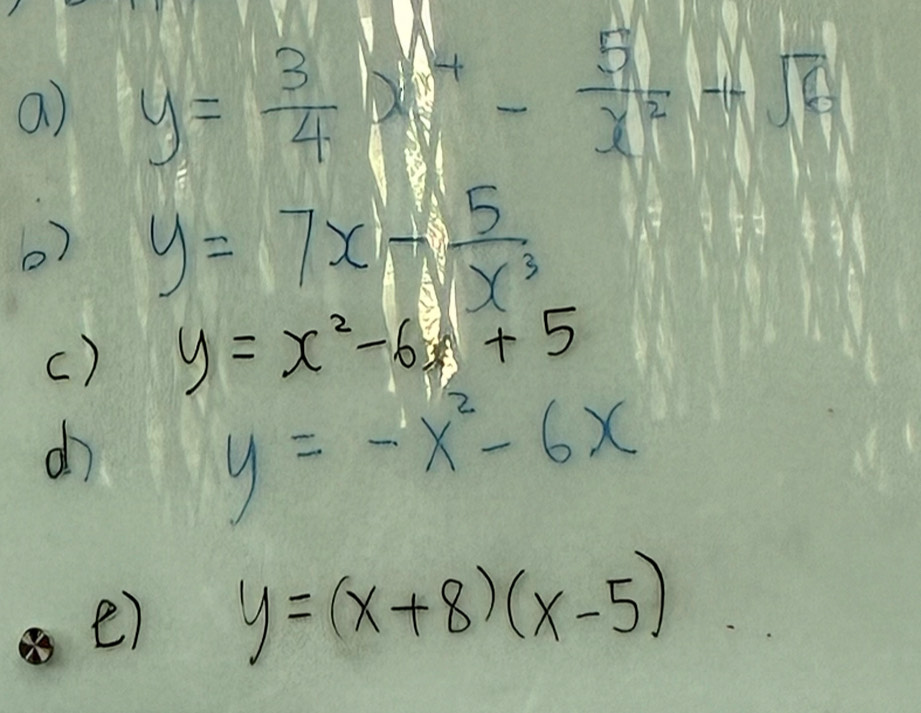 a) y = 3/4 x⁴ - 5/x² + √6
b) y = 7x - 5/x³
c) y = x² - 6x + 5
d) y = -x² - 6x
e) y = (x+8)(x-5) ..